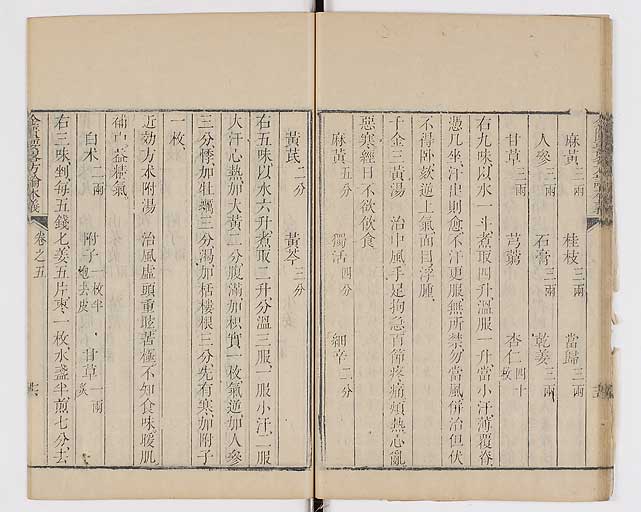 麻黃三兩 桂枝三兩 當歸三兩
人參三兩 石膏三兩 乾姜三兩
甘草三兩 芎藭 杏仁四十枚
右九味以水一斗煮取四升溫服一升當小汗薄覆脊
憑几坐汗出則愈不汗更服無所禁勿當風併治但伏
不得臥欬逆上氣面目浮腫
千金三黃湯 治中風手足拘急百節疼痛煩熱心亂
惡寒經日不欲飲食
麻黃五分 獨活四分 細辛二分
黃芪二分 黃芩三分
右五味以水六升煮取二升分溫三服一服小汗二服
大汗心熱加大黃二分腹滿加枳實一枚氣逆加人參
三分悸加牡蠣三分渴加栝樓根三分先有寒加附子
一枚
近効方朮附湯 治風虛頭重眩苦極不知食味暖肌
補中益精氣
白术二兩 附子一枚半炮去皮 甘草一兩炙
右三味剉每五錢匕姜五片棗一枚水盞半煎七分去
卷之五